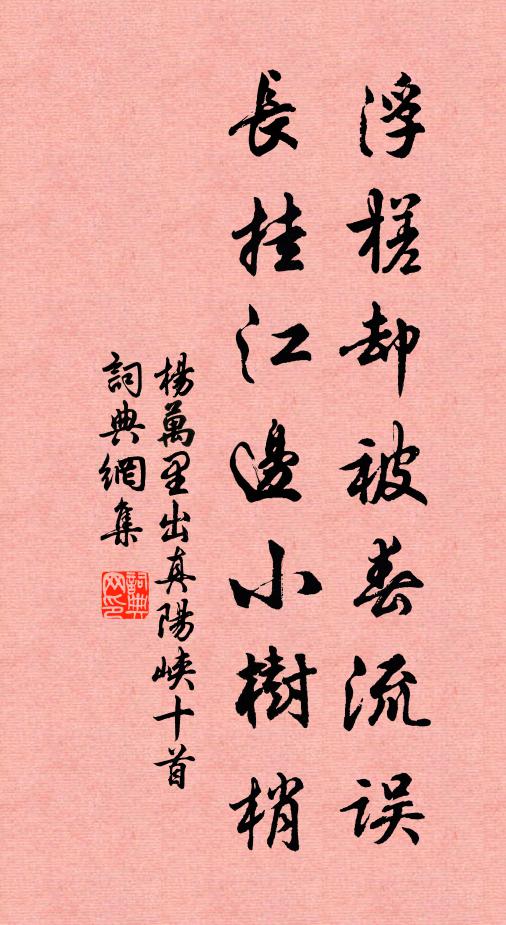 浮槎却被春流误
長挂江邊小樹梢
楊萬里出真陽峽十首
詞典網集
詞典
网印